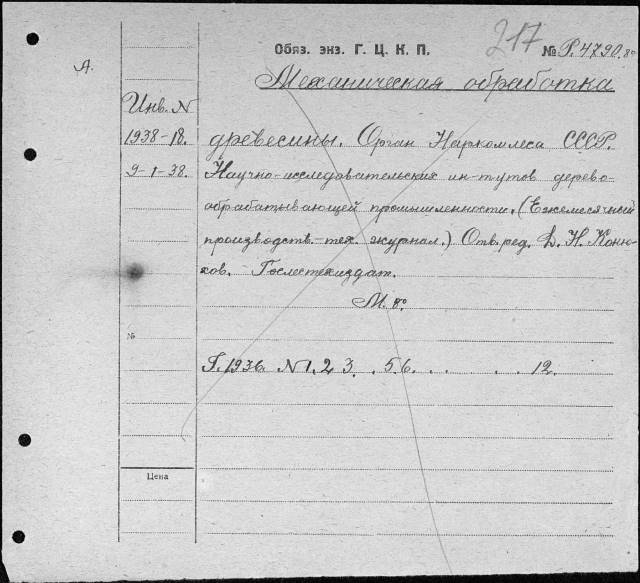 Обяз. экз. Г. Ц. К. П. 217 № Р. 4790. 8º
А.
Механическая обработка
Инв. N
1938-18. древесины. Орган Наркомлеса СССР.
9-1-38. Научно-исследовательских ин-тутов дерево-
обрабатывающей промышленности. (Ежемесячный
производств.-тех. журнал.) Отв. ред. Д. Н. Коню-
хов. Гослестехиздат.
М. 8º
№
Г. 1936. N 1. 2 3. . 5 6. . . . . . 12.
Цена